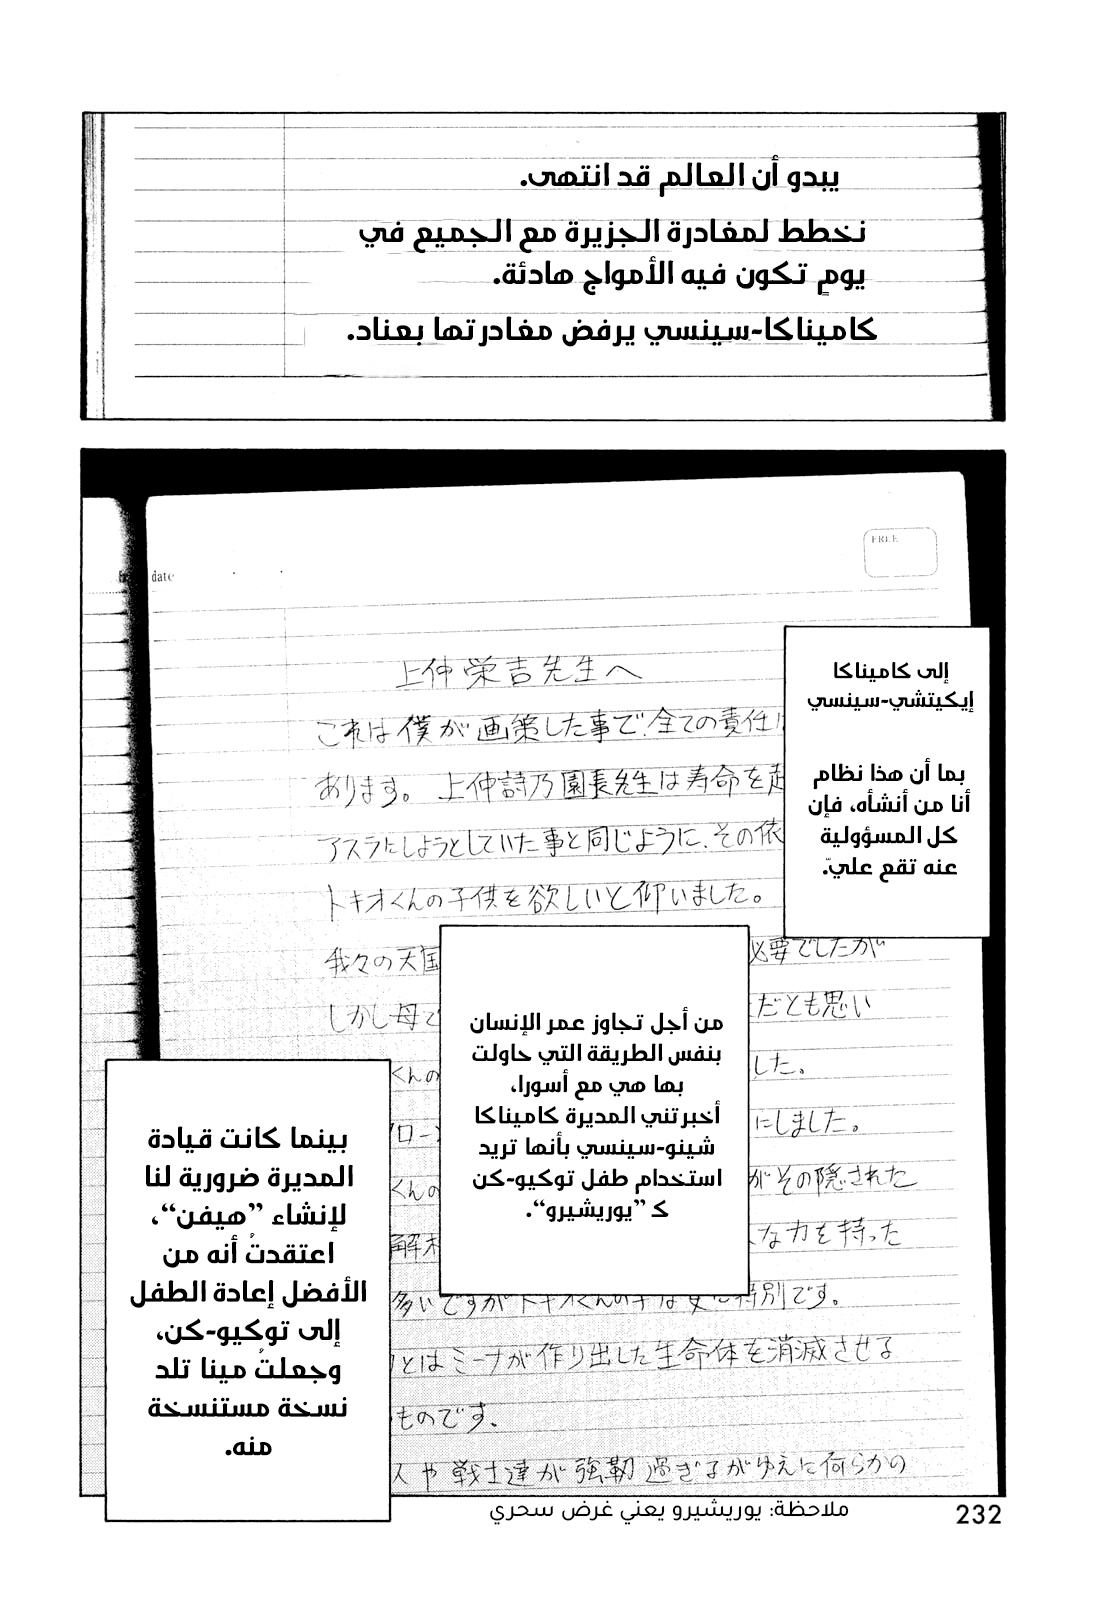 يبدو أن العالم قد انتهى.
نخطط لمغادرة الجزيرة مع الجميع في
يومٍ تكون فيه الأمواج هادئة.
كاميناكا-سينسي يرفض مغادرتها بعناد.
FREE
date
上仲栄吉先生へ
これは僕が画策した事で、全ての責任は
あります。上仲詩乃園長先生は寿命を超
アスラにしようとしていた事と同じように、その依
トキオくんの子供を欲しいと仰いました。
我々の天国
必要でしたが
しかし母で
だとも思い
くんの
した。
クローン
にしました。
くんの
がその隠された
解
な力を持った
多いですがトキオくんの子は更に特別です。
とはミーナが作り出した生命体を消滅させる
ものです。
人や戦士達が強靭過ぎるがゆえに何らかの
إلى كاميناكا
إيكيتشي-سينسي
بما أن هذا نظام
أنا من أنشأه، فإن
كل المسؤولية
عنه تقع عليّ.
من أجل تجاوز عمر الإنسان
بنفس الطريقة التي حاولت
بها هي مع أسورا،
أخبرتني المديرة كاميناكا
شينو-سينسي بأنها تريد
استخدام طفل توكيو-كن
كـ ”يوريشيرو“.
بينما كانت قيادة
المديرة ضرورية لنا
لإنشاء ”هيفن“،
اعتقدتُ أنه من
الأفضل إعادة الطفل
إلى توكيو-كن،
وجعلتُ مينا تلد
نسخة مستنسخة
منه.
ملاحظة: يوريشيرو يعني غرض سحري
232